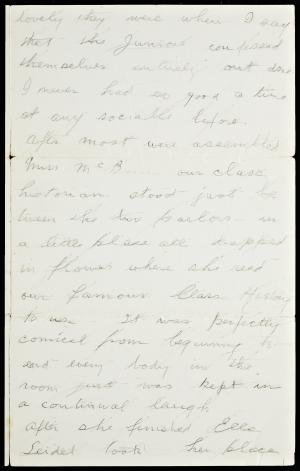 lovely they were when I say
that the Juniors confessed
themselves entirely out done
I never had so good a time
at any sociable before.
After most were assembled
Miss McB..... our class
historian stood just be
tween the two parlors in
a little place all draped
in flowers where she read
our famous Class History
to us. It was perfectly
comical from beginning to
end every body in the
room just was kept in
a continual laugh,
After she finished Ella
Seidel took her place